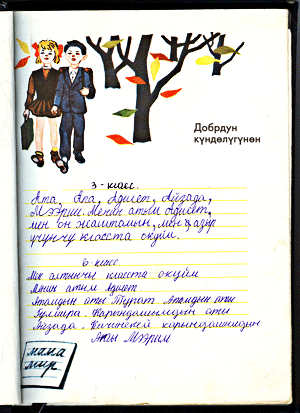 Добрдун
күндөлүгүнөн
3 - класс.
Ата, Апа, Адилет, Айзада,
Мээрим. Менин атым Адилет,
мен он жаштамын, мен азыр
үчүнчү класста окуйм.
6 класс
Мен алтынчы класста окуйм
Менин атим Адилет.
Атамдын аты Турат. Апамдын аты
Гулмира. Карындашымдын ати
Айзада. Кичинекей карындашимдин
Аты Мээрим
мама
мир